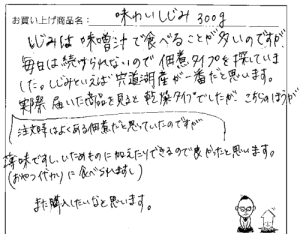 お買い上げ商品名： 味わいしじみ 300g
しじみは味噌汁で食べることが多いのですが、
毎日は続けられないので佃煮タイプを探していま
した。しじみといえば宍道湖産が一番だと思います。
実際届いた商品を見ると乾燥タイプでしたが、こちらのほうが
注文時はよくある佃煮だと思っていたのですが
薄味ですし、いためものに加えたりできるので良かったと思います。
(おやつ代わりに食べられますし)
また購入したいなと思います。